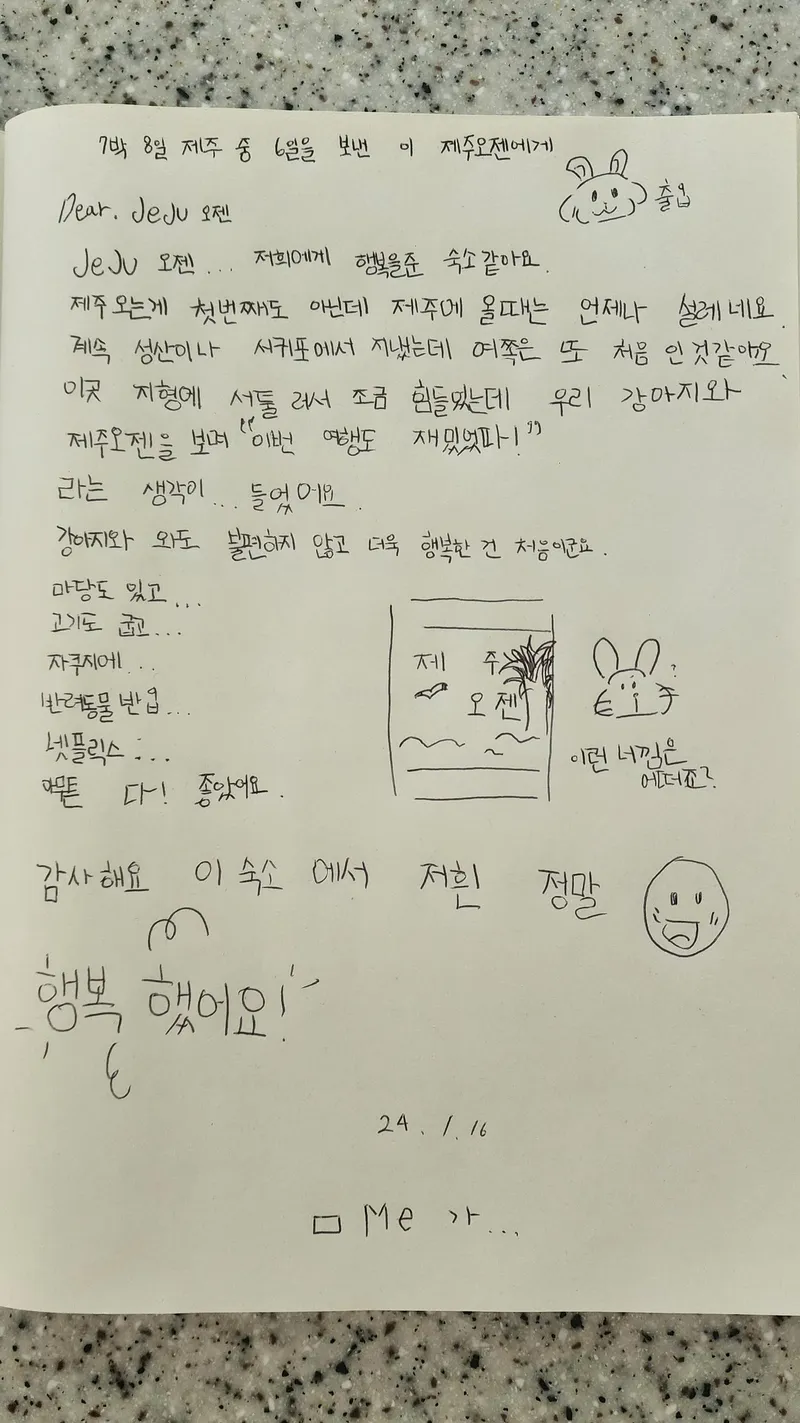 7박 8일 제주 중 6일을 보낸 이 제주오젠에게
출입
Dear. JeJu 오젠
JeJu 오젠... 저희에게 행복을준 숙소같아요.
제주오는게 첫번째도 아닌데 제주에 올때는 언제나 설레네요.
계속 성산이나 서귀포에서 지냈는데 여쪽은 또 처음 인것같아요.
이곳 지형에 서툴러서 조금 힘들었는데 우리 강아지와
제주오젠을 보며 "이번 여행도 재밌었따!"
라는 생각이... 들었어요.
강아지와 와도 불편하지 않고 더욱 행복한 건 처음이군요.
마당도 있고...
고기도 굽고...
자쿠지에...
반려동물반입...
넷플릭스...
아무튼 다! 좋았어요.
제 주
오 젠
?
이런 너낌은
어떠죠?
감사해요 이 숙소에서 저흰 정말
행복 했어요!
24. 1. 16
Me 가...